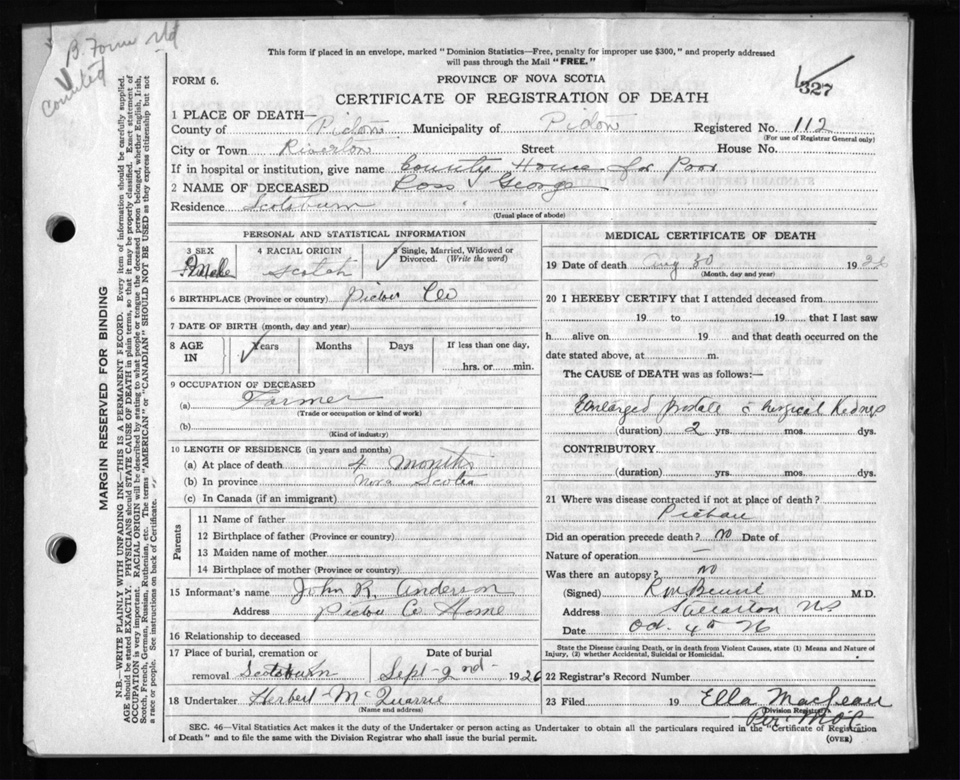 B. Form
Counted
This form if placed in an envelope, marked "Dominion Statistics—Free, penalty for improper use $300," and properly addressed
will pass through the Mail "FREE."
FORM 6.
PROVINCE OF NOVA SCOTIA
327
CERTIFICATE OF REGISTRATION OF DEATH
1 PLACE OF DEATH—
County of Pictou Municipality of Pictou Registered No. 112
(For use of Registrar General only)
City or Town Riverton Street House No.
If in hospital or institution, give name County Home for Poor
2 NAME OF DECEASED Ross George
Residence Scotsburn
(Usual place of abode)
PERSONAL AND STATISTICAL INFORMATION
3 SEX 4 RACIAL ORIGIN 5 Single, Married, Widowed or Divorced. (Write the word)
Male Scotch
6 BIRTHPLACE (Province or country) Pictou Co
7 DATE OF BIRTH (month, day and year)
8 AGE IN Years Months Days If less than one day,
hrs. or min.
9 OCCUPATION OF DECEASED
(a) Farmer
(Trade or occupation or kind of work)
(b)
(Kind of industry)
10 LENGTH OF RESIDENCE (in years and months)
(a) At place of death 4 months
(b) In province Nova Scotia
(c) In Canada (if an immigrant)
Parents
11 Name of father
12 Birthplace of father (Province or country)
13 Maiden name of mother
14 Birthplace of mother (Province or country)
15 Informant's name John R. Anderson
Address Pictou Co Home
16 Relationship to deceased
17 Place of burial, cremation or removal Scotsburn
Date of burial Sept-2nd- 1926
18 Undertaker Herbert McQuarrie
(Name and address)
MEDICAL CERTIFICATE OF DEATH
19 Date of death Aug 30 1926
(Month, day and year)
20 I HEREBY CERTIFY that I attended deceased from
19 to 19 that I last saw
h alive on 19 and that death occurred on the
date stated above, at m.
The CAUSE of DEATH was as follows:—
Enlarged Prostate c Surgical Kidneys
(duration) 2 yrs. mos. dys.
CONTRIBUTORY
(duration) yrs. mos. dys.
21 Where was disease contracted if not at place of death?
Pictou
Did an operation precede death? No Date of
Nature of operation —
Was there an autopsy? no
(Signed) M.D.
Address Stellarton NS
Date Oct. 4th 26
State the Disease causing Death, or in death from Violent Causes, state (1) Means and Nature of
Injury, (2) whether Accidental, Suicidal or Homicidal.
22 Registrar's Record Number
23 Filed 19 Ella MacLean
Division Registrar
Per
SEC. 46—Vital Statistics Act makes it the duty of the Undertaker or person acting as Undertaker to obtain all the particulars required in the "Certificate of Registration
of Death" and to file the same with the Division Registrar who shall issue the burial permit.
(OVER)
MARGIN RESERVED FOR BINDING
N.B.—WRITE PLAINLY WITH UNFADING INK—THIS IS A PERMANENT RECORD. Every item of information should be carefully supplied.
AGE should be stated EXACTLY. PHYSICIANS should STATE CAUSE OF DEATH in plain terms, so that it may be properly classified. Exact statement of
OCCUPATION is very important. RACIAL ORIGIN will be described by stating to what people or tongue the deceased person belonged, whether English, Irish,
Scotch, French, German, Russian, Ruthenian, etc. The terms "AMERICAN" or "CANADIAN" SHOULD NOT BE USED as they express citizenship but not
a race or people. See instructions on back of Certificate.